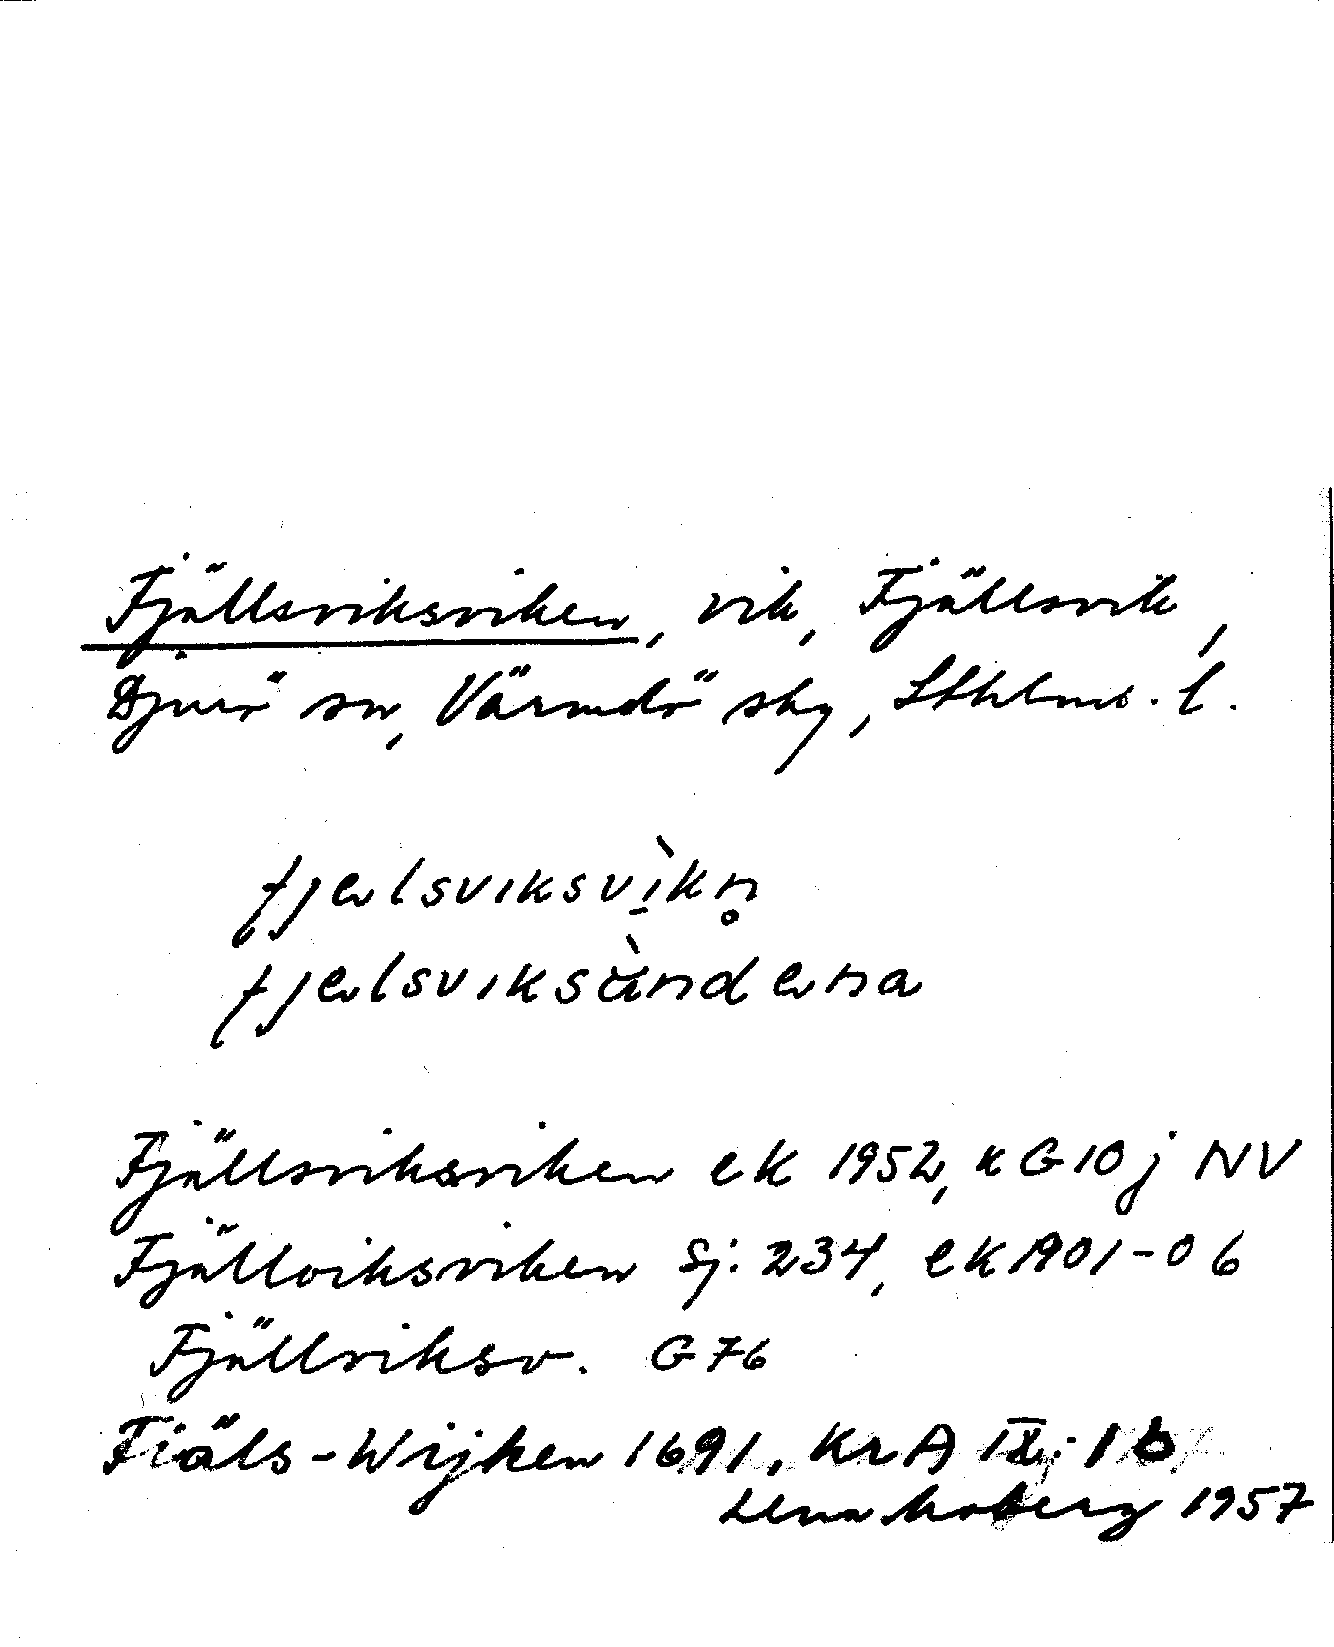 Fjällsviksviken, vik, Fjällsvik,
Djurö sn, Värmdö skg, Sthlms. l.
fjelsviksvìkn̥
fjelsviksàndena
Fjällsviksviken ek 1952, k G 10 j NV
Fjällviksviken Sj. 234, ek 1901-06
Fjällviksv. G 76
Fiäls-Wijken 1691, KrA IX: 1 b
Lena Moberg 1957